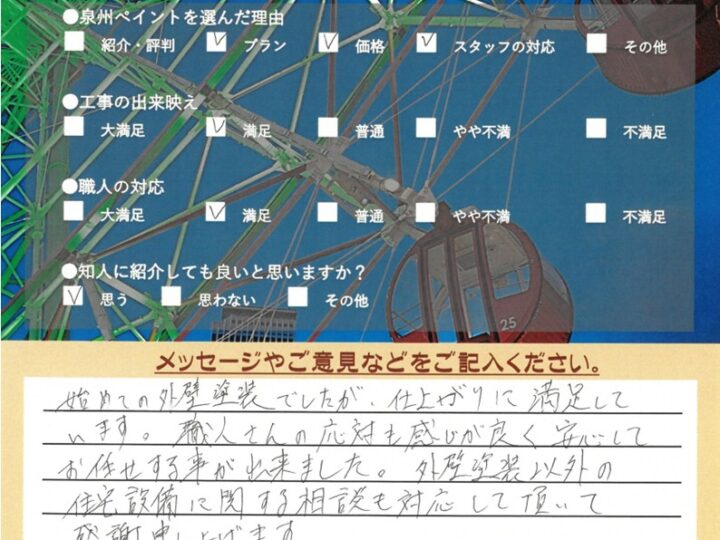 ●泉州ペイントを選んだ理由
紹介・評判 プラン 価格 スタッフの対応 その他
●工事の出来映え
大満足 満足 普通 やや不満 不満足
●職人の対応
大満足 満足 普通 やや不満 不満足
●知人に紹介しても良いと思いますか？
思う 思わない その他
25
メッセージやご意見などをご記入ください。
始めての外壁塗装でしたが、仕上がりに満足して
います。職人さんの応対も感じが良く安心して
お任せする事が出来ました。外壁塗装以外の
住宅設備に関する相談も対応して頂いて
感謝申し上げます